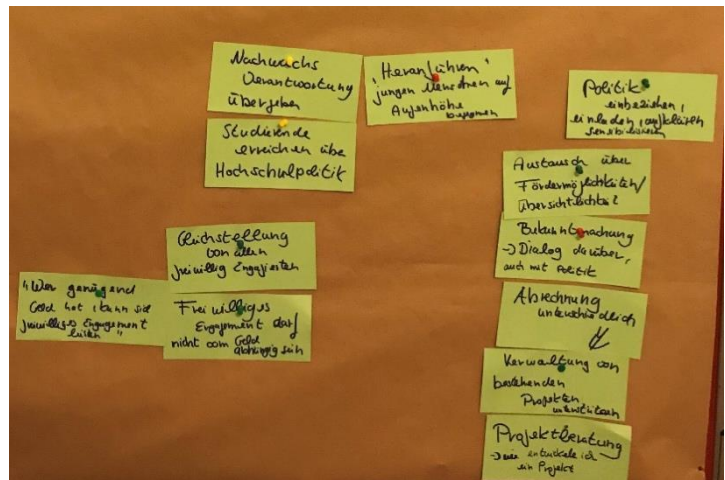 Nachwuchs
Verantwortung
übergeben
Studierende
erreichen über
Hochschulpolitik
"Heranführen"
jungen Menschen auf
Augenhöhe
begegnen
Politik
einbeziehen,
einladen, aufklären
sensibilisieren
Austausch über
Fördermöglichkeiten/
Übersichtlichkeit
Bekanntmachung
-> Dialog darüber,
auch mit Politik
Abrechnung
unterschiedlich
Verwaltung von
bestehenden
Projekten
unterstützen
Projektberatung
-> wie entwickle ich
ein Projekt
Gleichstellung
von allen
freiwillig Engagierten
"Wer genügend
Geld hat, kann sich
freiwilliges Engagement
leisten"
Freiwilliges
Engagement darf
nicht vom Geld
abhängig sein